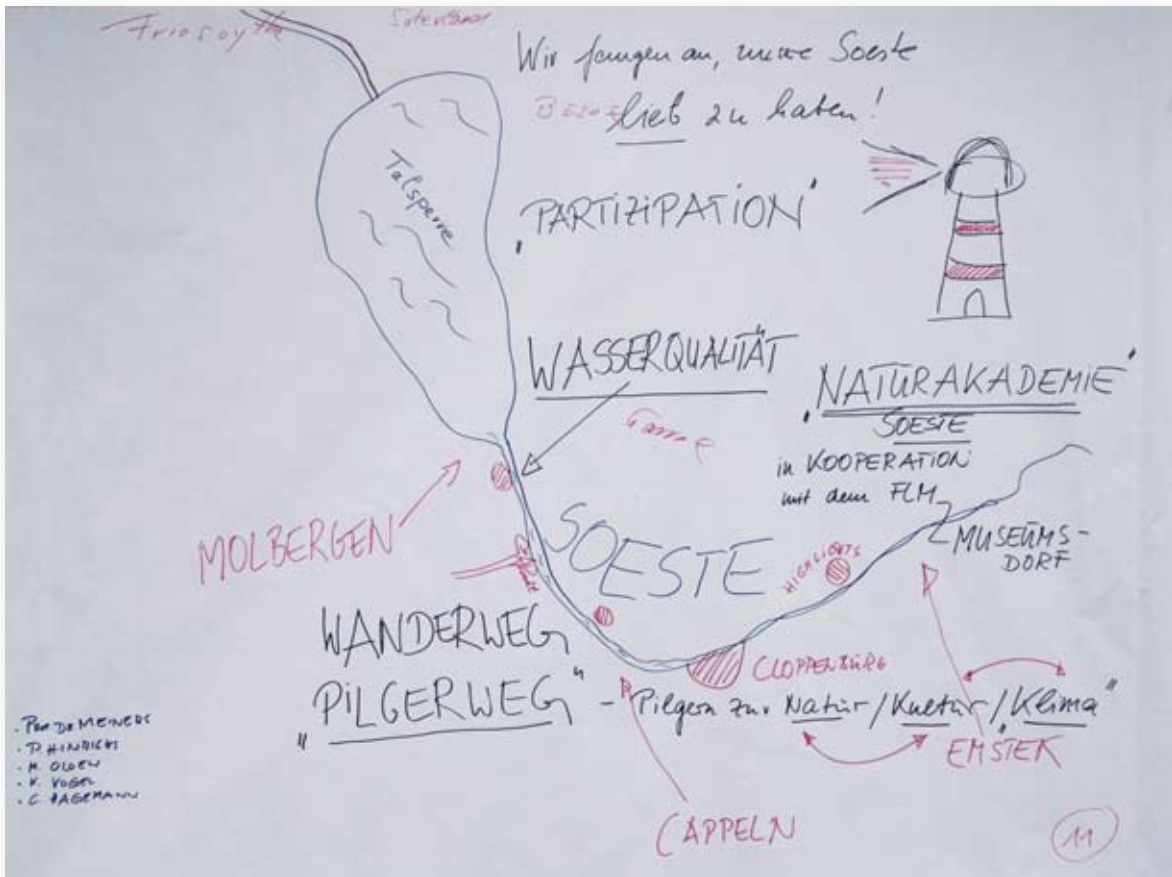 Friesoythe
Wir fangen an, unsere Soeste
lieb zu haben!
Talsperre
"PARTIZIPATION"
WASSERQUALITÄT
"NATURAKADEMIE"
SOESTE
in KOOPERATION
mit dem FLM
MUSEUMS-
DORF
MOLBERGEN
SOESTE
HIGHLIGHTS
WANDERWEG
CLOPPENBURG
"PILGERWEG" - Pilgern zur Natur/Kultur/"Klima"
EMSTEK
CAPPELN
· Prof. Dr. MEINERS
· P. HINRICHS
· M. OLDEN
· K. VOGEL
· C. HAGEMANN
11